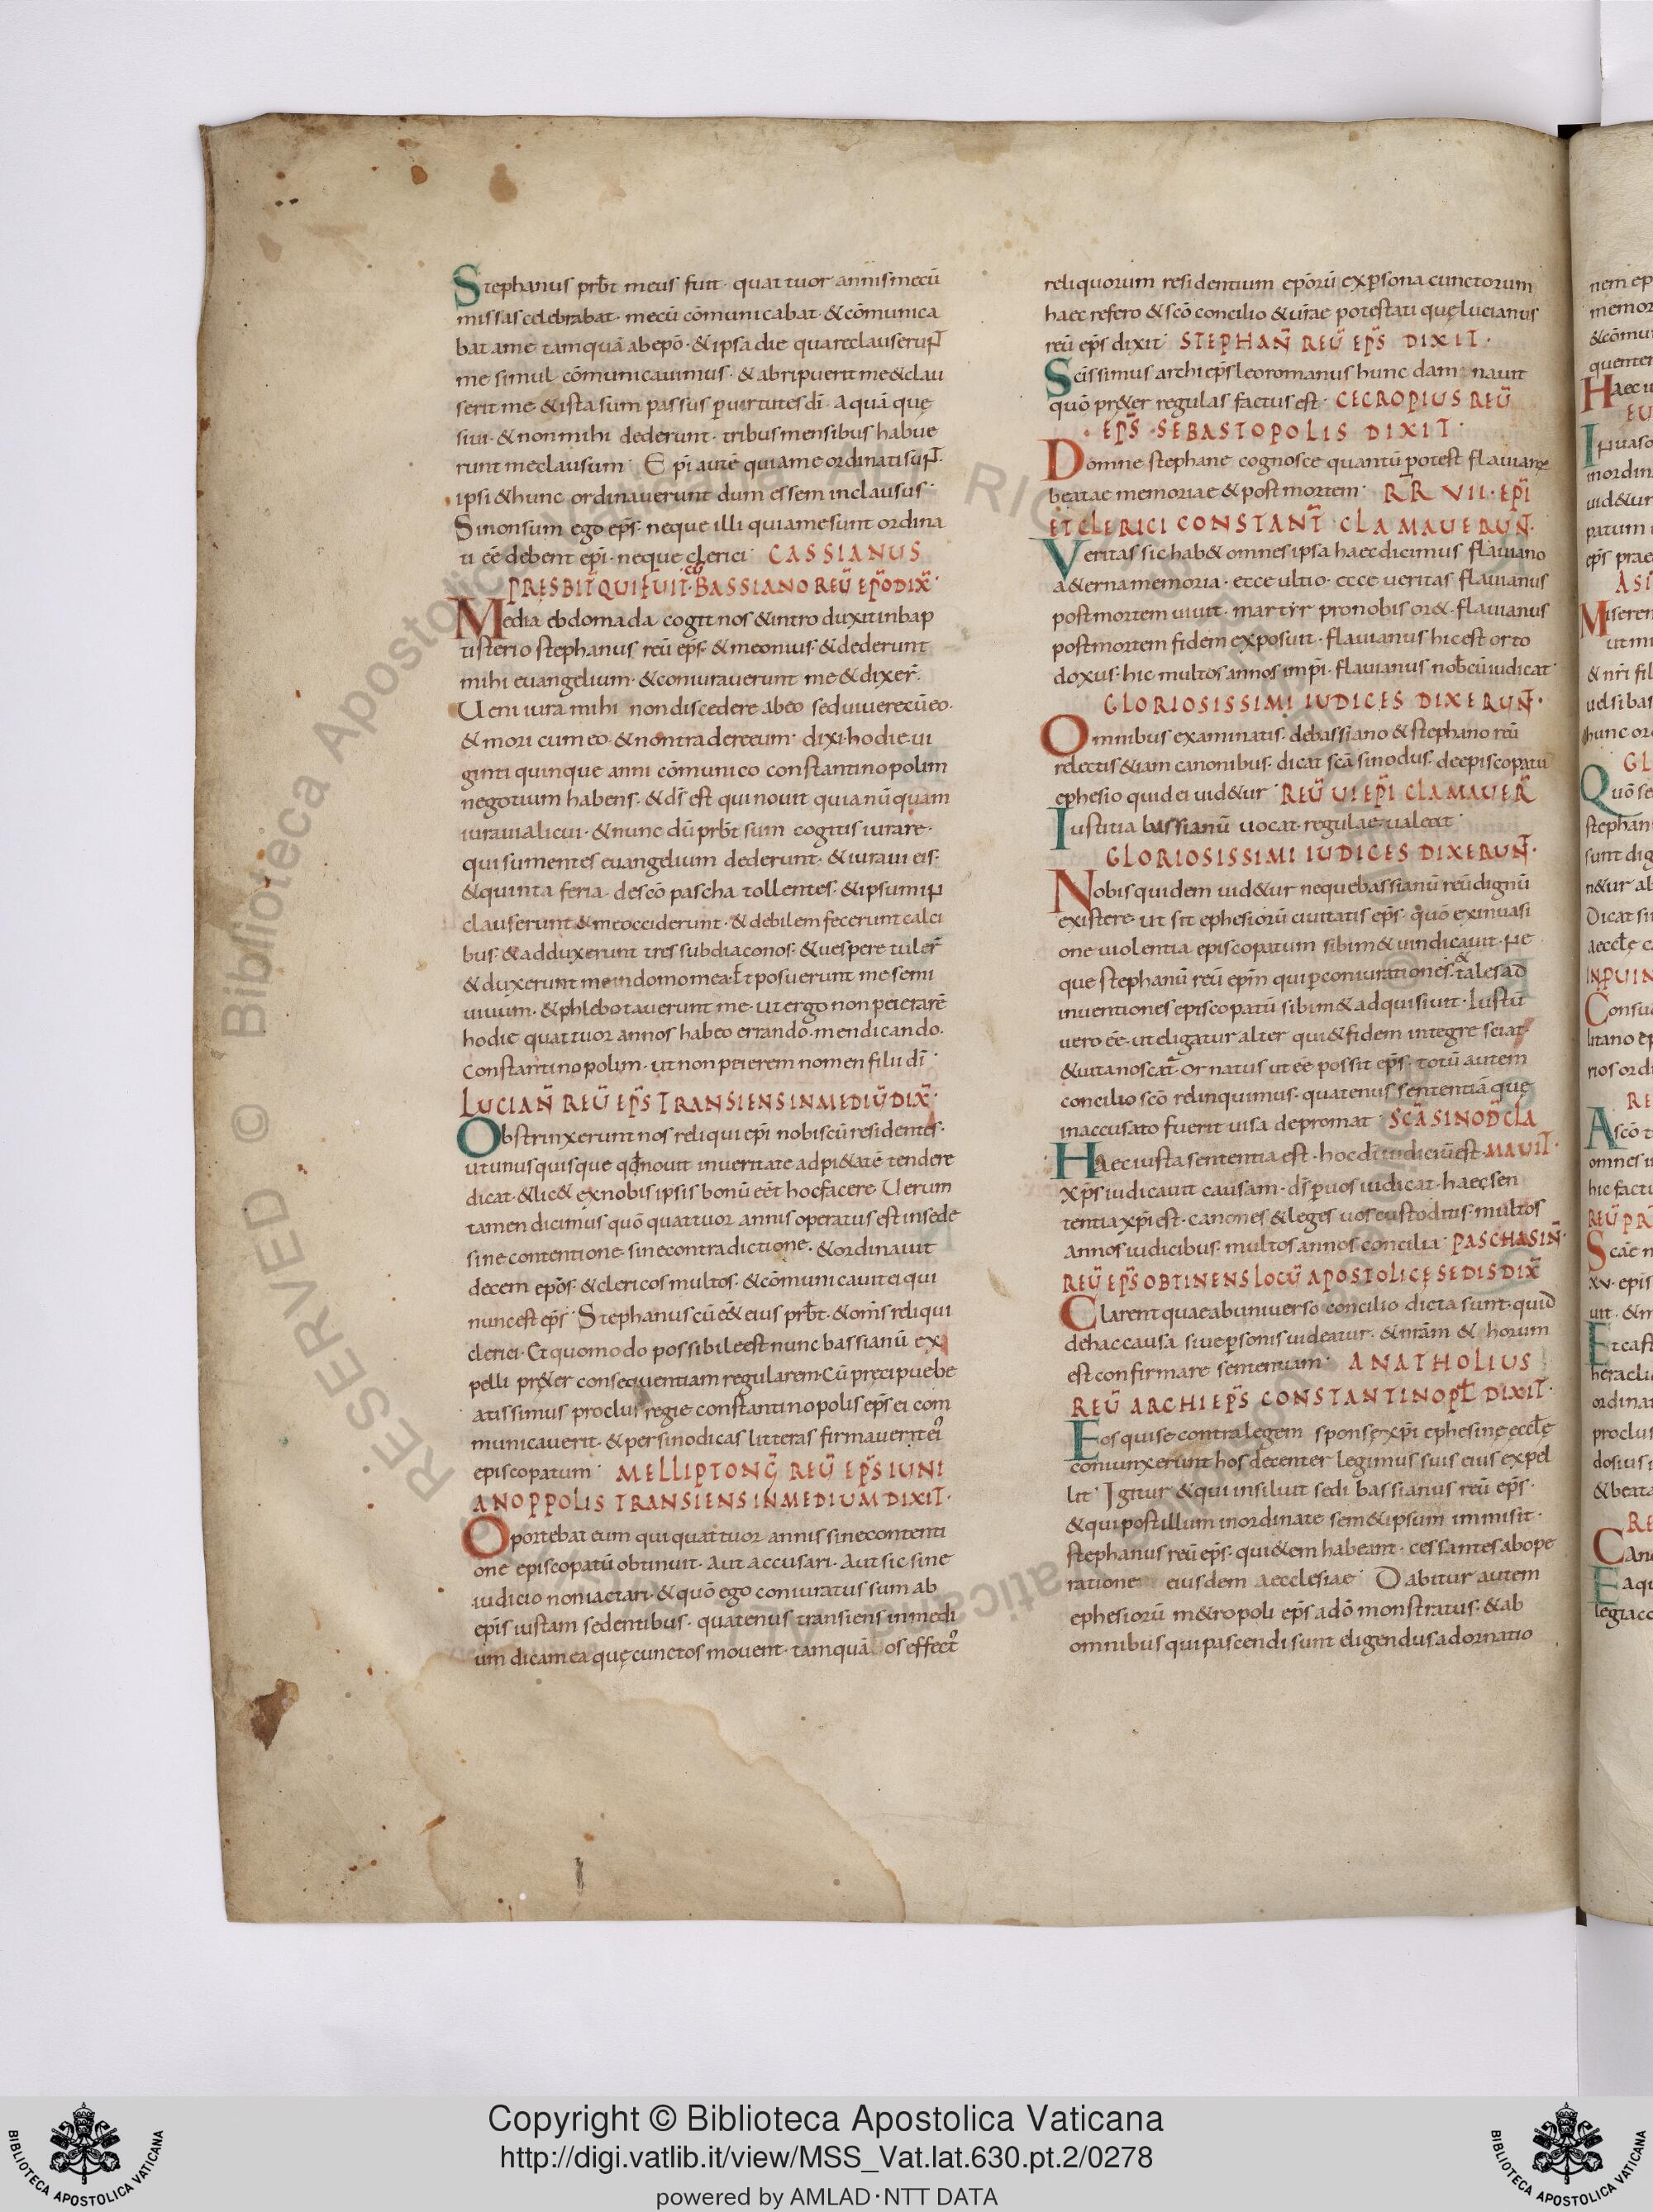 Stephanus prb̄t meus fuit · quattuor annis mecū
missas celebrabat · mecū cōmunicabat · & cōmunica
bat ame tamquā abepō · & ipsa die qua reclauserunt
me simul cōmunicauimus · & abripuerit me & clau
serit me · & ista sum passus p uirtutes dī · aquā quę
siui · & non mihi dederunt · tribus mensibus habue
runt me clausum · Epī autē qui ame ordinati sunt ·
ipsi & hunc ordinauerunt dum essem inclausus ·
Si non sum ego ep̄s · neque illi qui ame sunt ordina
ti eē debent epī · neque clerici · CASSIANUS
PRESBIT̄ QUI FUIT · CŪ BASSIANO REŪ EPO DIX̄ ·
Media ebdomada cogit nos & introduxit inbap
tisterio stephanus reū ep̄s · & meonius · & dederunt
mihi euangelium · & coniurauerunt me & dixer̄ ·
Ueni iura mihi non discedere abeo sed uiuere cū eo ·
& mori cum eo · & non tradere eum · dixi · hodie ui
ginti quinque anni cōmuneo constantinopolim
negotium habens · & d̄s est qui nouit quia nūquam
iuraui alicui · & nunc dū prb̄t sum cogitis iurare ·
qui sumentes euangelium dederunt · & iuraui eis ·
& quinta feria · de scō pascha tollentes · & ipsum in
clauserunt & me occiderunt · & debilem fecerunt calci
bus · & adduxerunt tres subdiaconos · & uespere tuler̄
& duxerunt me in domo mea · et posuerunt me semi
uiuum · & phlebotauerunt me · ut ergo non peierarē
hodie quattuor annos habeo errando · mendicando ·
Constantinopolim · ut non peierem nomen filii dī ·
LUCIAN̄ REŪ EP̄S TRANSIENS IN MEDIŪ DIX̄ ·
Obstrinxerunt nos reliqui epī nobiscū residentes ·
ut unusquisque qd nouit in ueritate ad pi&atē tendere
dicat · & lic& ex nobis ipsis bonū eēt hoc facere · Uerum
tamen dicimus quō quattuor annis operatus est in sede
sine contentione · sine contradictione · & ordinauit
decem epōs · & clericos multos · & cōmunicauit ei qui
nunc est ep̄s · Stephanus cū eē& eius prb̄t · & om̄s reliqui
clerici · Et quomodo possibile est nunc bassianū ex
pelli pr&er consequentiam regularem · Cū precipue be
atissimus proclus regie constantinopolis ep̄s ei com
municauerit · & per sinodicas litteras firmauerit ei
episcopatum · MELLIPTONḠ REŪ EP̄S IUNI
ANOPPOLIS TRANSIENS IN MEDIUM DIXIT ·
Oportebat eum qui quattuor annis sine contenti
one episcopatū obtinuit · aut accusari · aut sic sine
iudicio non iactari · & quō ego coniuratus sum ab
ep̄is iustam sedentibus · quatenus transiens in medi
um dicam ea quę cunctos mouent · tamquā os effect
reliquorum residentium epōrū ex psona cunctorum
haec refero & scō concilio & ur̄ae potestati quę lucianus
reū ep̄s dixit · STEPHAN̄ REŪ EP̄S DIXIT ·
Sc̄issimus archiep̄s leo romanus hunc damnauit
quō pr&er regulas factus est · CECROPIUS REŪ
EP̄S · SEBASTOPOLIS DIXIT ·
Domne stephane cognosce quantū potest flauianę
beatae memoriae & post mortem · R̄R VII · EPĪ
ET CLERICI CONSTANT̄ CLAMAUERUN̄ ·
Veritas sic hab& omnes ipsa haec dicimus flauiano
a&erna memoria · ecce ultio · ecce ueritas flauianus
post mortem uiuit · martyr pro nobis or& · flauianus
post mortem fidem exposuit · flauianus hic est orto
doxus · hic · multos annos impī · flauianus nob̄cū iudicat ·
GLORIOSISSIMI IUDICES DIXERUN̄T ·
Omnibus examinatis · de bassiano & stephano reū
relectis &iam canonibus · dicat scā sinodus · de episcopatu
ephesio quid ei uid&ur · REŪ UI EPĪ CLAMAUER̄
Iustitia bassianū uocat · regulae ualeat ·
GLORIOSISSIMI IUDICES DIXERUN̄T ·
Nobis quidem uid&ur neque bassianū reū dignū
existere · ut sit ephesiorū ciuitatis ep̄s · quō ex inuasi
one uiolentia episcopatum sibim& uindicauit · ne
que stephanū reū ep̄m qui p coniurationes & tales ad
inuentiones episcopatū sibim& adquisiuit · Iustū
uero eē · ut eligatur alter qui & fidem integre sciat ·
& uita noscat̄ ornatus ut eē possit ep̄s · totū autem
concilio scō relinquimus · quatenus sententiā quę
inaccusato fuerit uisa depromat · SCĀ SINOD̄ CLA
Haec iusta sententia est · hoc dī iudiciū est · MAUIT ·
Xp̄s iudicauit causam · d̄s p uos iudicat · haec sen
tentia xp̄i est · canones & leges uos custoditis · multos
annos iudicibus · multos annos concilia · PASCHASIN̄ ·
REŪ EP̄S OBTINENS LOCŪ APOSTOLICĘ SEDIS DIX̄
Clarent quae ab uniuerso concilio dicta sunt · quid
de hac causa · siue psonis uideatur · & nr̄am & horum
est confirmare sententiam · ANATHOLIUS
REŪ ARCHIEP̄S CONSTANTINOPL̄ DIXIT ·
Eos qui se contra legem sponsę xp̄i ephesinę eccl̄ę
coniunxerunt hos decenter legimus suis eius expel
lit · Igitur & qui insiluit sedi bassianus reū ep̄s ·
& qui post illum inordinate sem&ipsum immisit ·
stephanus reū ep̄s · qui&em habeant · cessantes ab ope
ratione eiusdem aecclesiae · Dabitur autem
ephesiorū m&ropoli ep̄s a dō monstratus · & ab
omnibus qui pascendi sunt eligendus ad ornatio
Copyright © Biblioteca Apostolica Vaticana
http://digi.vatlib.it/view/MSS_Vat.lat.630.pt.2/0278
powered by AMLAD·NTT DATA
BIBLIOTECA APOSTOLICA VATICANA
BIBLIOTECA APOSTOLICA VATICANA